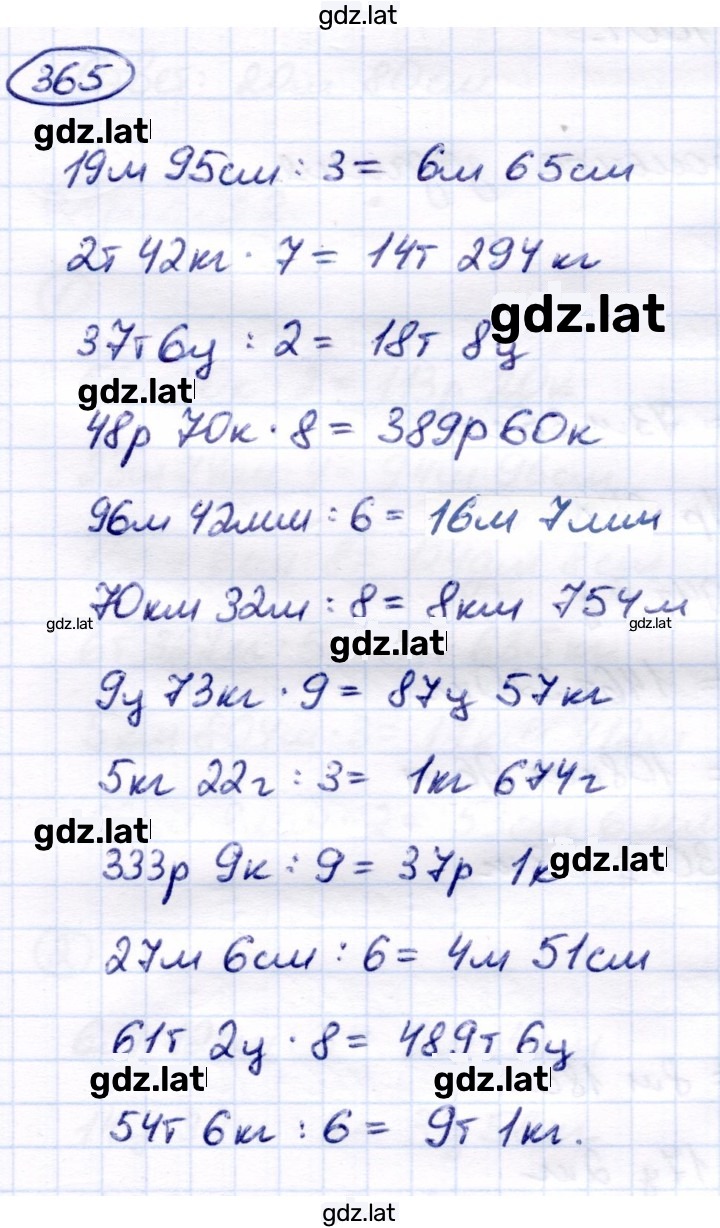 gdz.lat
365
gdz.lat
19м 95см : 3 = 6м 65см
2т 42кг · 7 = 14т 294кг
gdz.lat
37т 6ц : 2 = 18т 8ц
gdz.lat
48р 70к · 8 = 389р 60к
96м 42мм : 6 = 16м 7мм
70км 32м : 8 = 8км 754м
gdz.lat gdz.lat gdz.lat
9ц 73кг · 9 = 87ц 57кг
5кг 22г : 3 = 1кг 674г
gdz.lat
333р 9к : 9 = 37р 1к
gdz.lat
27м 6см : 6 = 4м 51см
61т 2ц · 8 = 489т 6ц
gdz.lat gdz.lat
54т 6кг : 6 = 9т 1кг.
gdz.lat